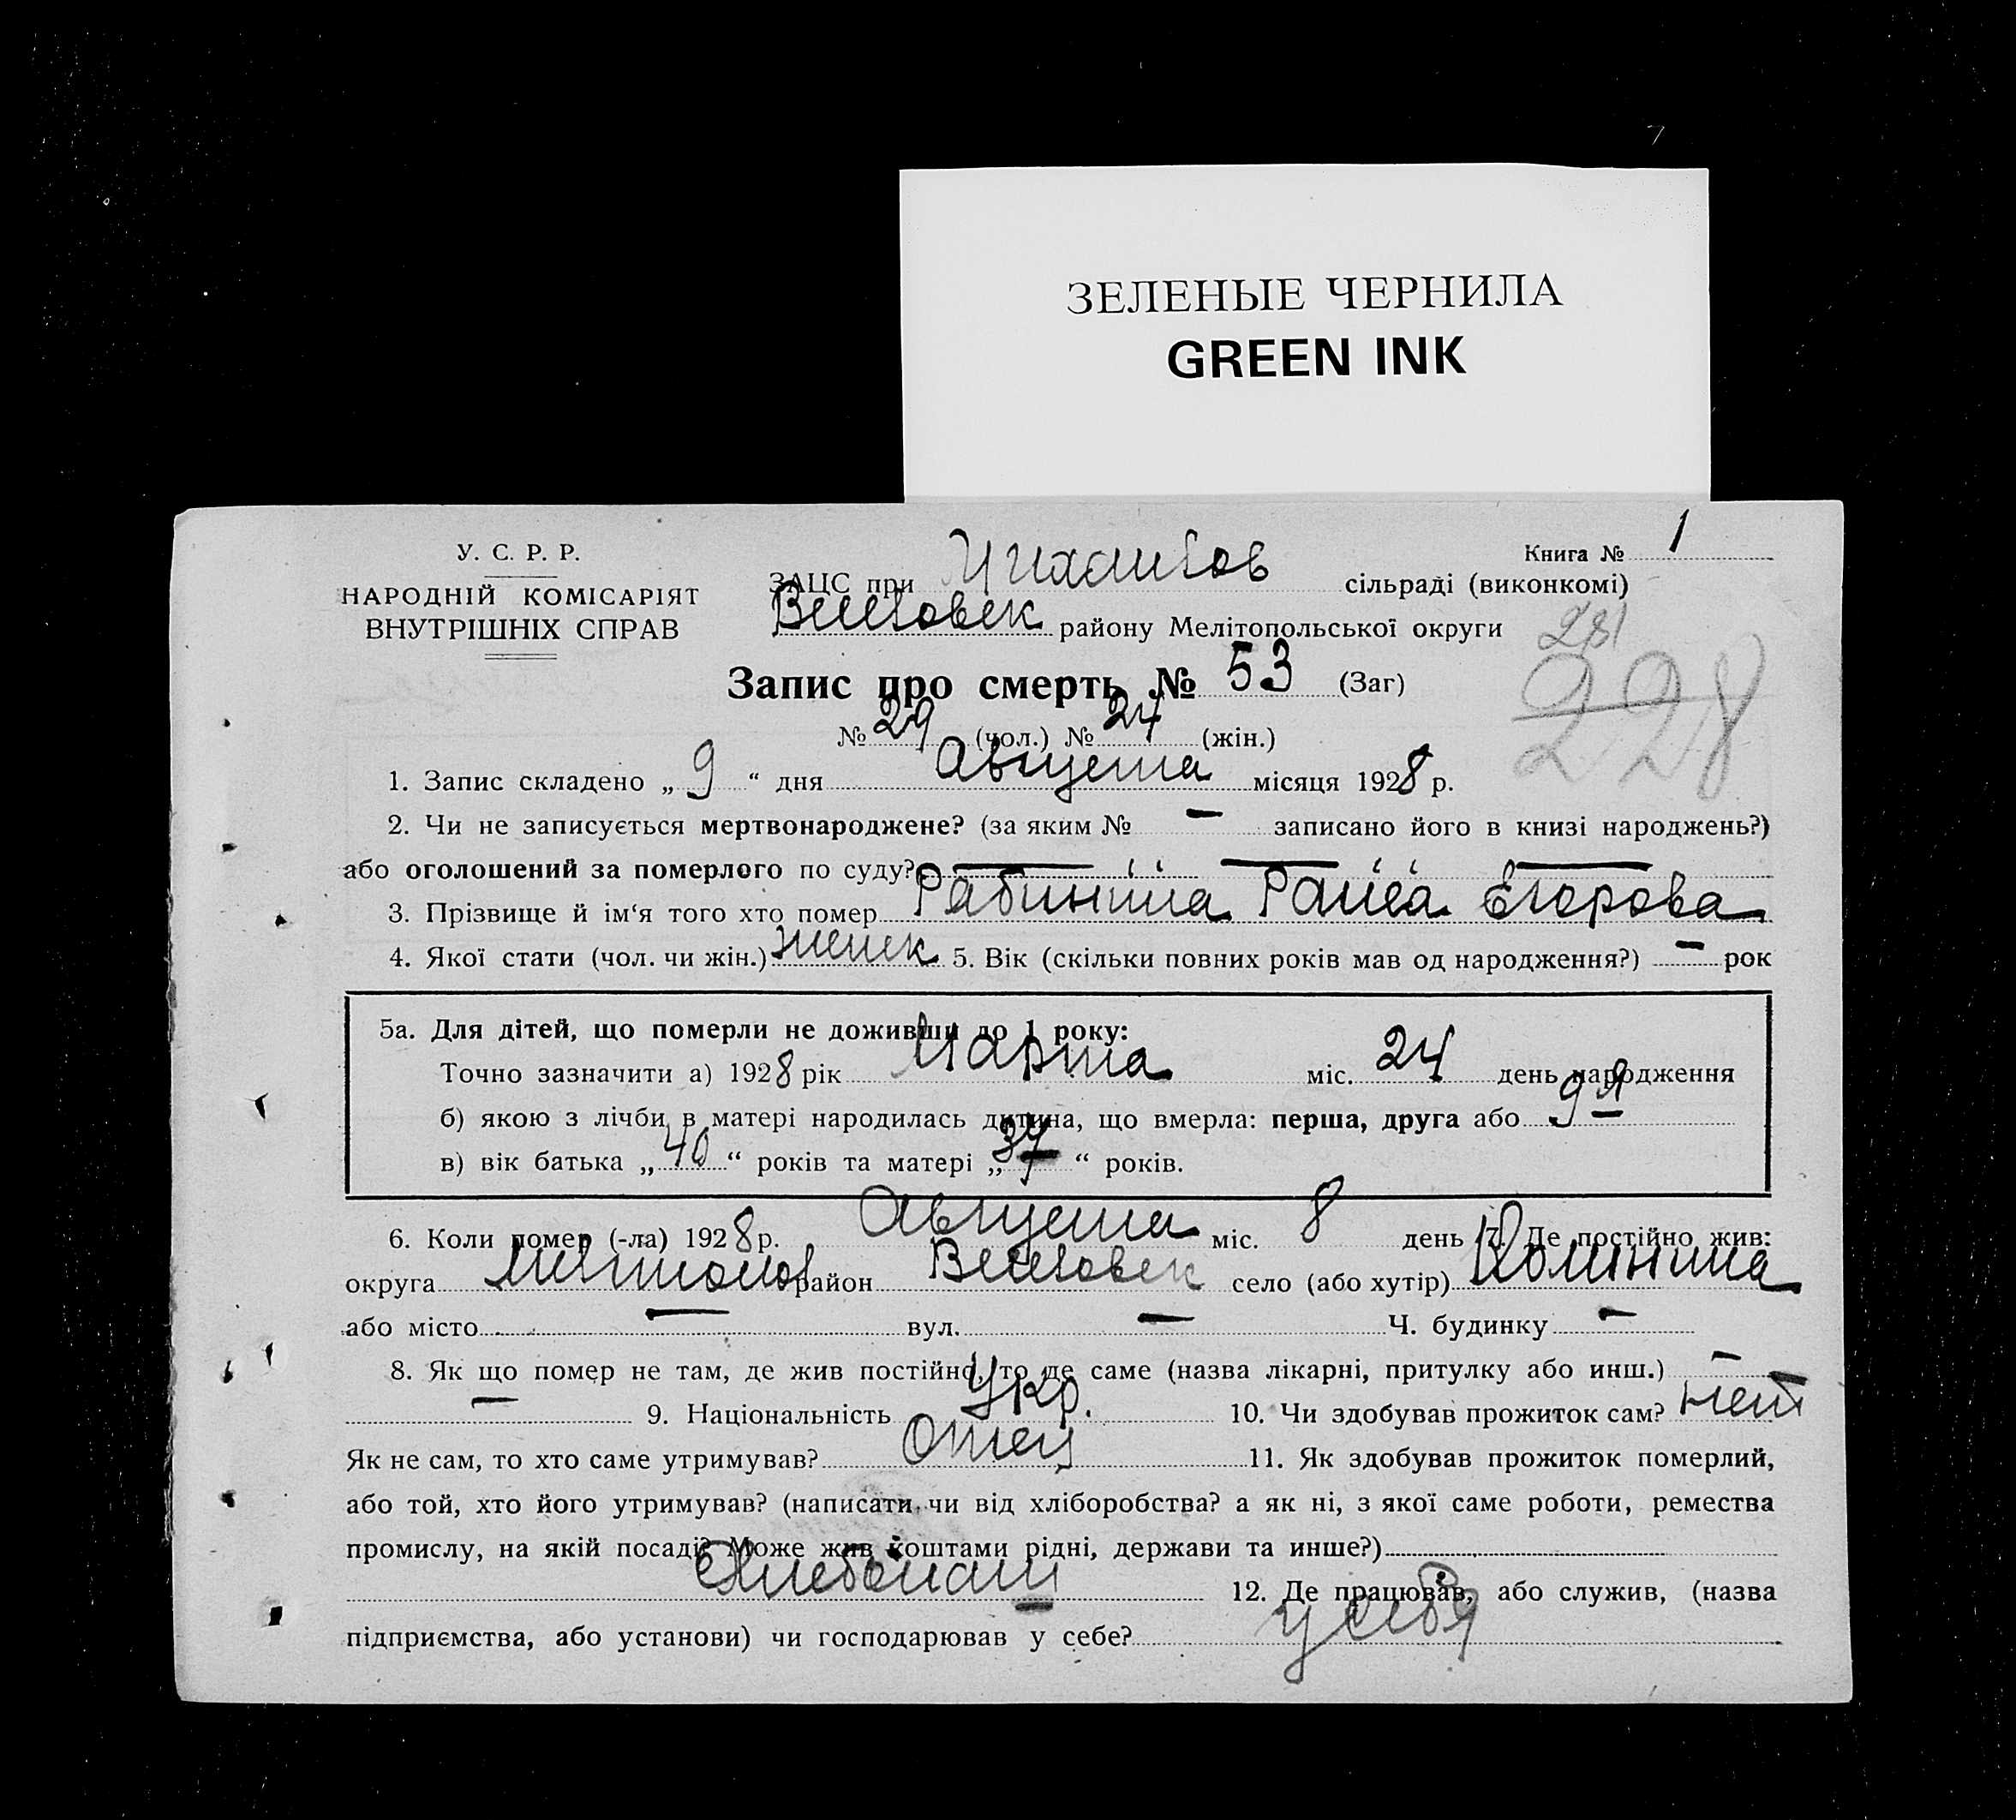 ЗЕЛЕНЫЕ ЧЕРНИЛА
GREEN INK
У. С. Р. Р.
НАРОДНІЙ КОМІСАРІЯТ
ВНУТРІШНІХ СПРАВ
Книга № 1
ЗАЦС при сільраді (виконкомі)
району Мелітопольської округи
281
228
Запис про смерть № 53 (Заг)
№ 29 (чол.) № 24 (жін.)
1. Запис складено „ 9 “ дня Августа місяця 1928 р.
2. Чи не записується мертвонароджене? (за яким № — записано його в книзі народжень?)
або оголошений за померлого по суду? — — —
3. Прізвище й ім‘я того хто помер Раиса Егорова
4. Якої стати (чол. чи жін.) женск 5. Вік (скільки повних років мав од народження?) — рок
5а. Для дітей, що померли не доживши до 1 року:
Точно зазначити а) 1928 рік Марта міс. 24 день народження
б) якою з лічби в матері народилась дитина, що вмерла: перша, друга або 9я
в) вік батька „ 40 “ років та матері „ 37 “ років.
6. Коли помер (-ла) 1928 р. Августа міс. 8 день 7. Де постійно жив:
округа район село (або хутір)
або місто — вул. — Ч. будинку —
8. Як що помер не там, де жив постійно, то де саме (назва лікарні, притулку або инш.) —
— 9. Національність Укр. 10. Чи здобував прожиток сам? нет
Як не сам, то хто саме утримував? Отец 11. Як здобував прожиток померлий,
або той, хто його утримував? (написати чи від хліборобства? а як ні, з якої саме роботи, ремества
промислу, на якій посаді? Може жив коштами рідні, держави та инше?)
Хлебопаш 12. Де працював, або служив, (назва
підприємства, або установи) чи господарював у себе? у себя